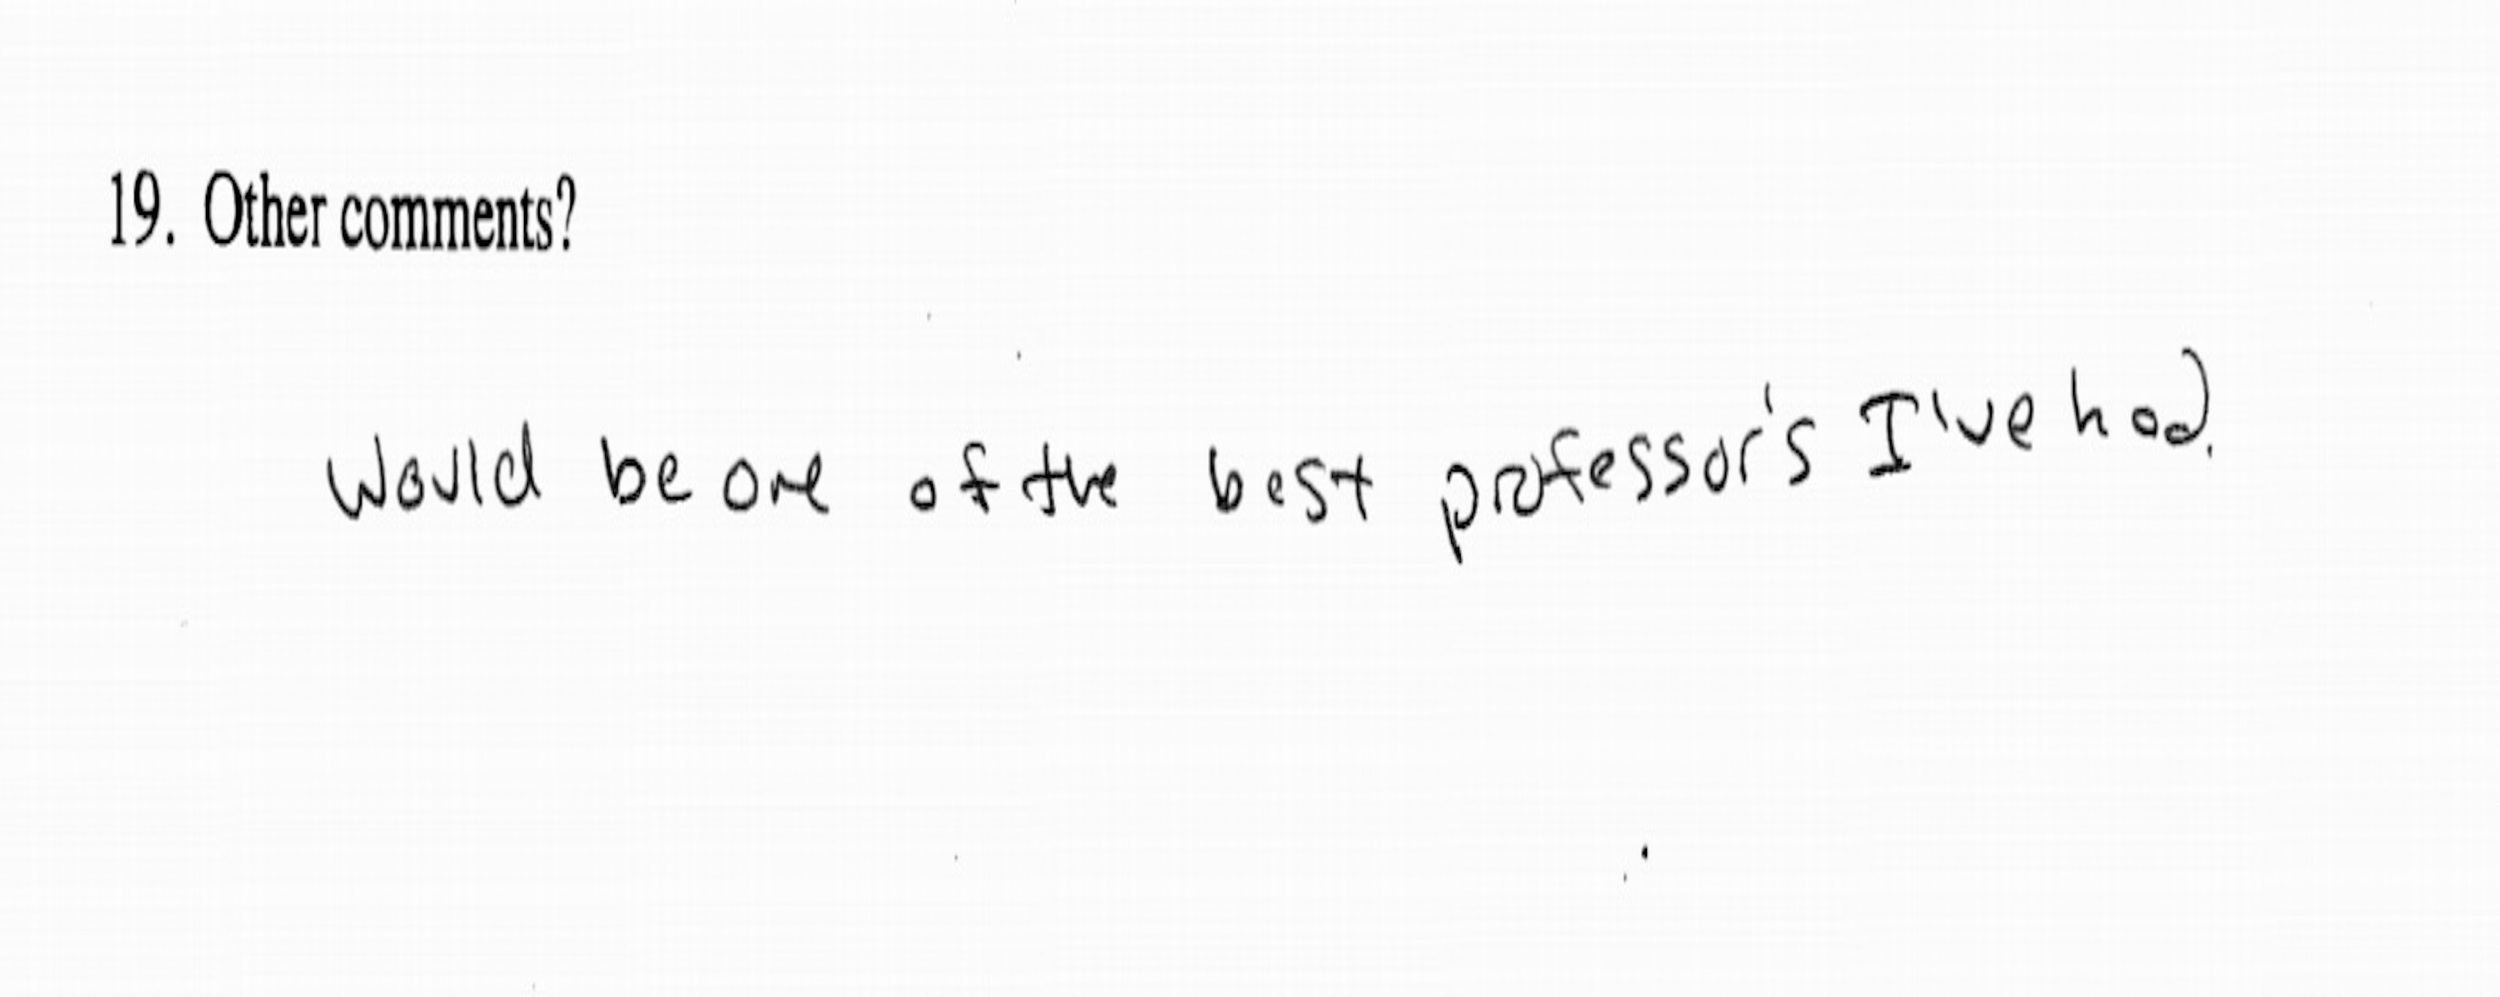 19. Other comments?
Would be one of the best professor's I've had.